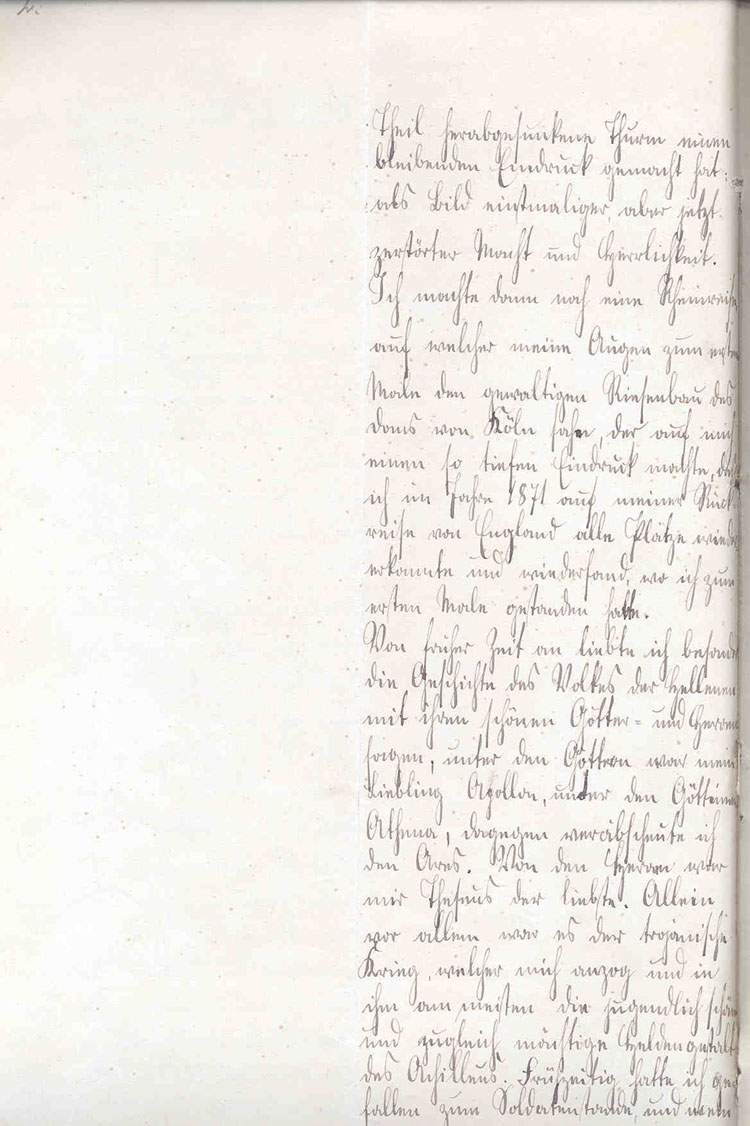 2.
Theil herabgesunkene Thurm einen
bleibenden Eindruck gemacht hat;
als Bild einstmaliger, aber jetzt
zerstörter Macht und Herrlichkeit.
Ich machte dann noch eine Rheinreise
auf welcher meine Augen zum ersten
Male den gewaltigen Riesenbau des
Doms von Köln sahn, der auf mich
einen so tiefen Eindruck machte, daß
ich im Jahre 1871 auf meiner Rück-
reise von England alle Plätze wieder
erkannte und wiederfand, wo ich zum
ersten Male gestanden hatte.
Von früher Zeit an liebte ich besonders
die Geschichte des Volkes der Hellenen
mit ihren schönen Götter- und Heroen
sagen; unter den Göttern war mein
Liebling Apollon, unter den Göttinnen
Athena, dagegen verabscheute ich
den Ares. Von den Heroen war
mir Theseus der liebste. Allein
vor allem war es der trojanische
Krieg, welcher mich anzog und in
ihm am meisten die jugendlich schöne
und zugleich mächtige Heldengestalt
des Achilleus. Frühzeitig hatte ich Ge-
fallen zum Soldatenstande, und wenn